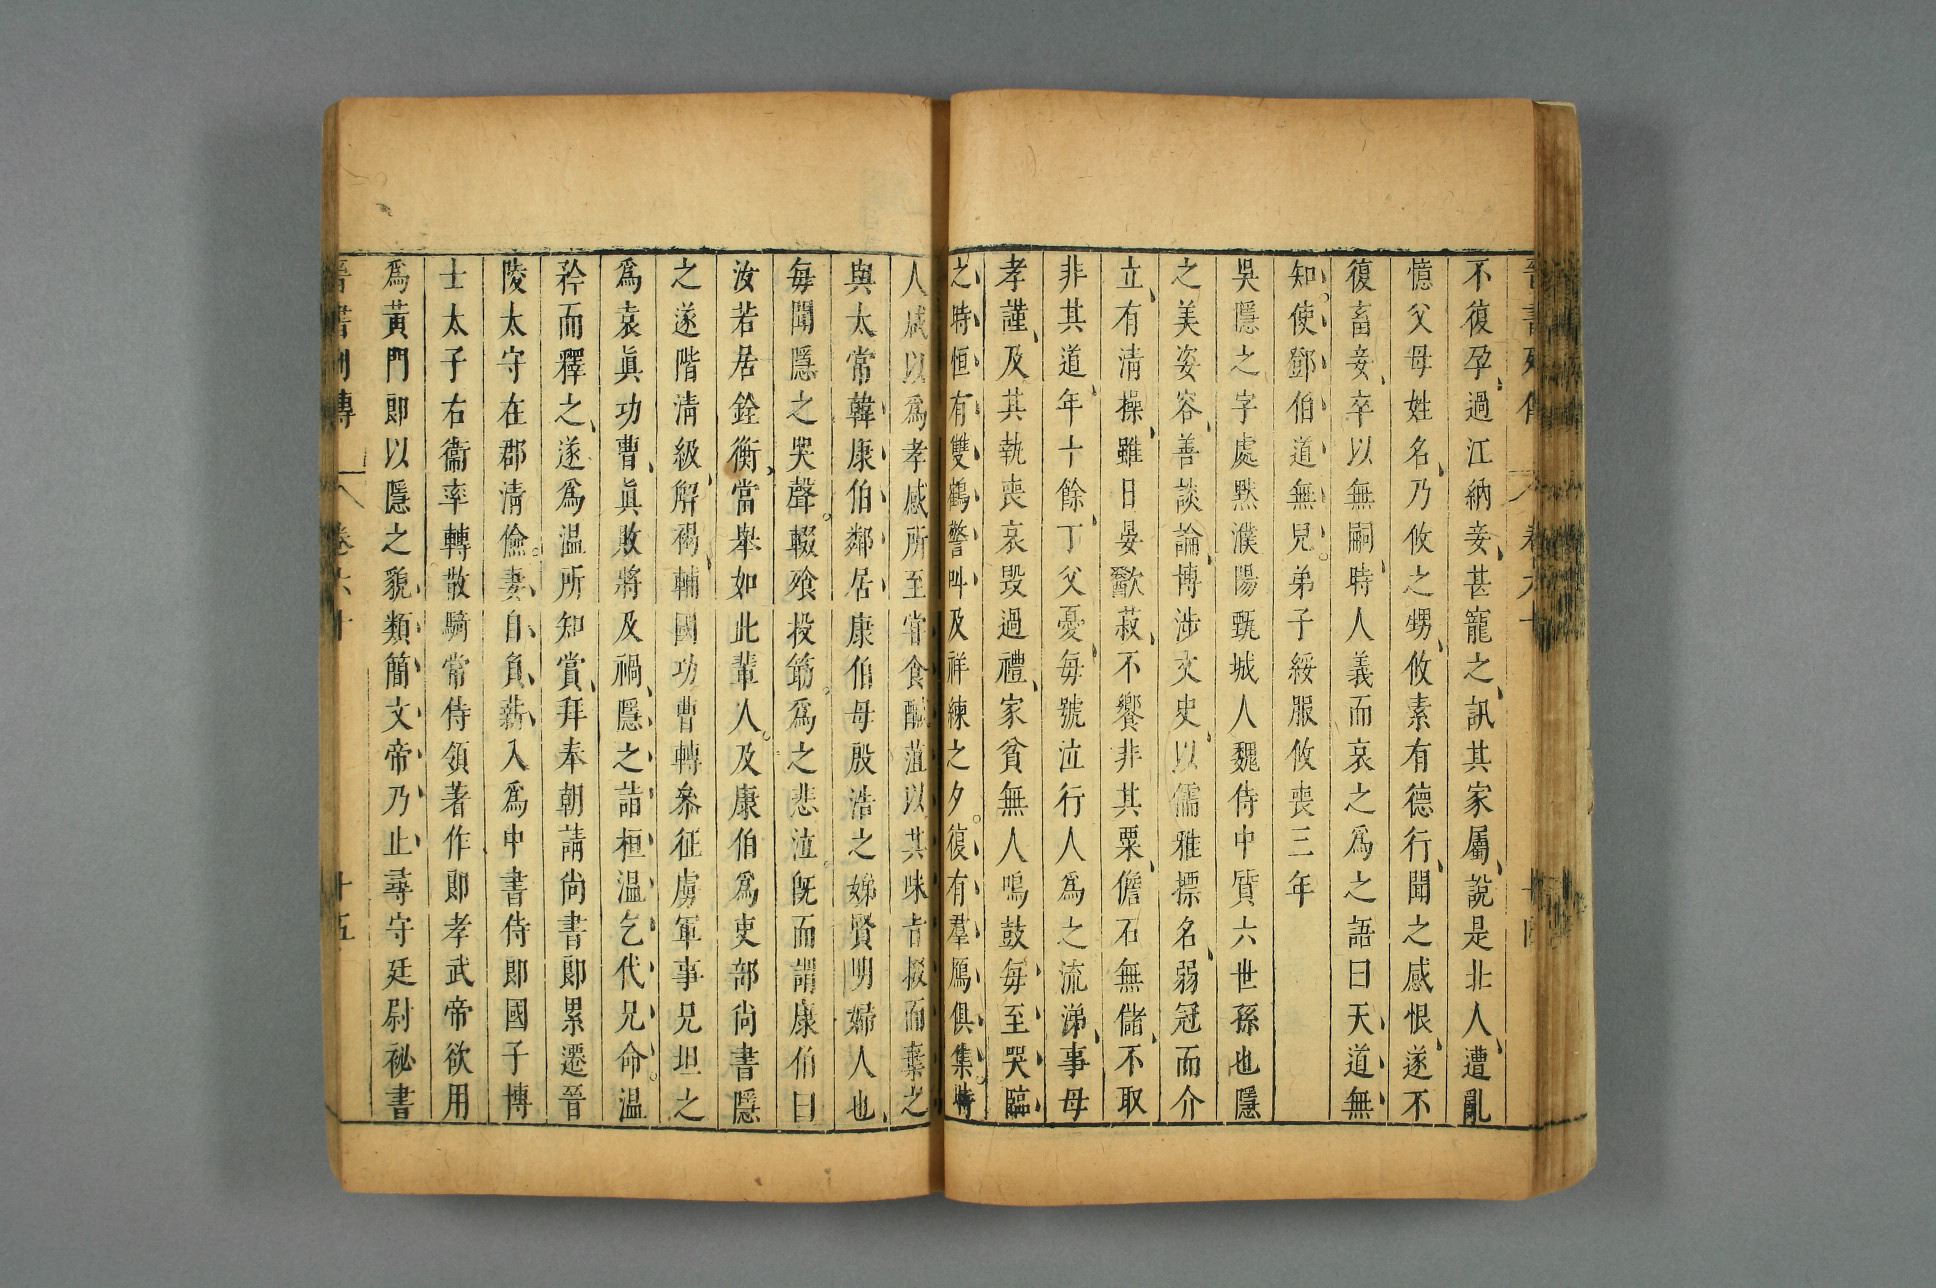 不復孕過江納妾甚寵之訊其家屬說是北人遭亂
憶父母姓名乃攸之甥攸素有德行聞之感恨遂不
復畜妾卒以無嗣時人義而哀之爲之語曰天道無
知使鄧伯道無兒弟子綏服攸喪三年
吳隱之字處默濮陽甄城人魏侍中質六世孫也隱
之美姿容善談論博涉文史以儒雅摽名弱冠而介
立有清操雖日晏歠菽不饗非其粟儋石無儲不取
非其道年十餘丁父憂每號泣行人爲之流涕事母
孝謹及其執喪哀毀過禮家貧無人鳴鼓每至哭臨
之時恒有雙鶴警叫及祥練之夕復有羣鴈俱集時
人咸以爲孝感所至甞食醎菹以其味旨掇而棄之
與太常韓康伯鄰居康伯母殷浩之姊賢明婦人也
每聞隱之哭聲輟飡投筯爲之悲泣旣而謂康伯曰
汝若居銓衡當舉如此輩人及康伯爲吏部尚書隱
之遂階清級解褐輔國功曹轉叅征虜軍事兄坦之
爲袁眞功曹眞敗將及禍隱之詣桓溫乞代兄命溫
矜而釋之遂爲溫所知賞拜奉朝請尚書郎累遷晉
陵太守在郡清儉妻自負薪入爲中書侍郎國子博
士太子右衞率轉散騎常侍領著作郎孝武帝欲用
爲黃門郎以隱之貌類簡文帝乃止尋守廷尉祕書
晉書列傳 卷六十 十五